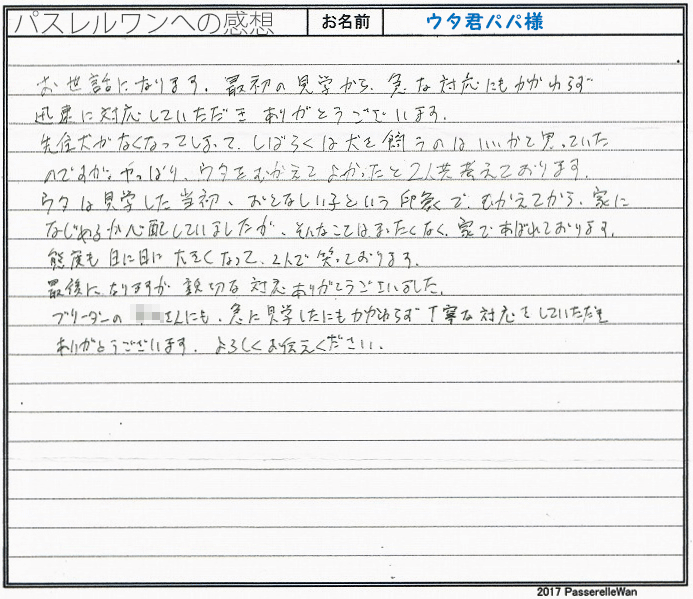 パスレルワンへの感想 お名前 ウタ君パパ様
お世話になります。最初の見学から、急な対応にもかかわらず
迅速に対応していただき ありがとうございます。
先住犬がなくなってしまって、しばらくは犬を飼うのはいいかと思っていた
のですが、やっぱり、ウタをむかえてよかったと2人共考えております。
ウタは見学した当初、おとなしい子という印象で、むかえてから、家に
なじめるか心配していましたが、そんなことはまったくなく、家であばれております。
態度も日に日に大きくなって、2人で笑っております。
最後になりますが 親切な対応ありがとうございました。
ブリーダーの さんにも、急に見学したにもかかわらず丁寧な対応をしていただき
ありがとうございます。よろしくお伝えください。
2017 PasserelleWan